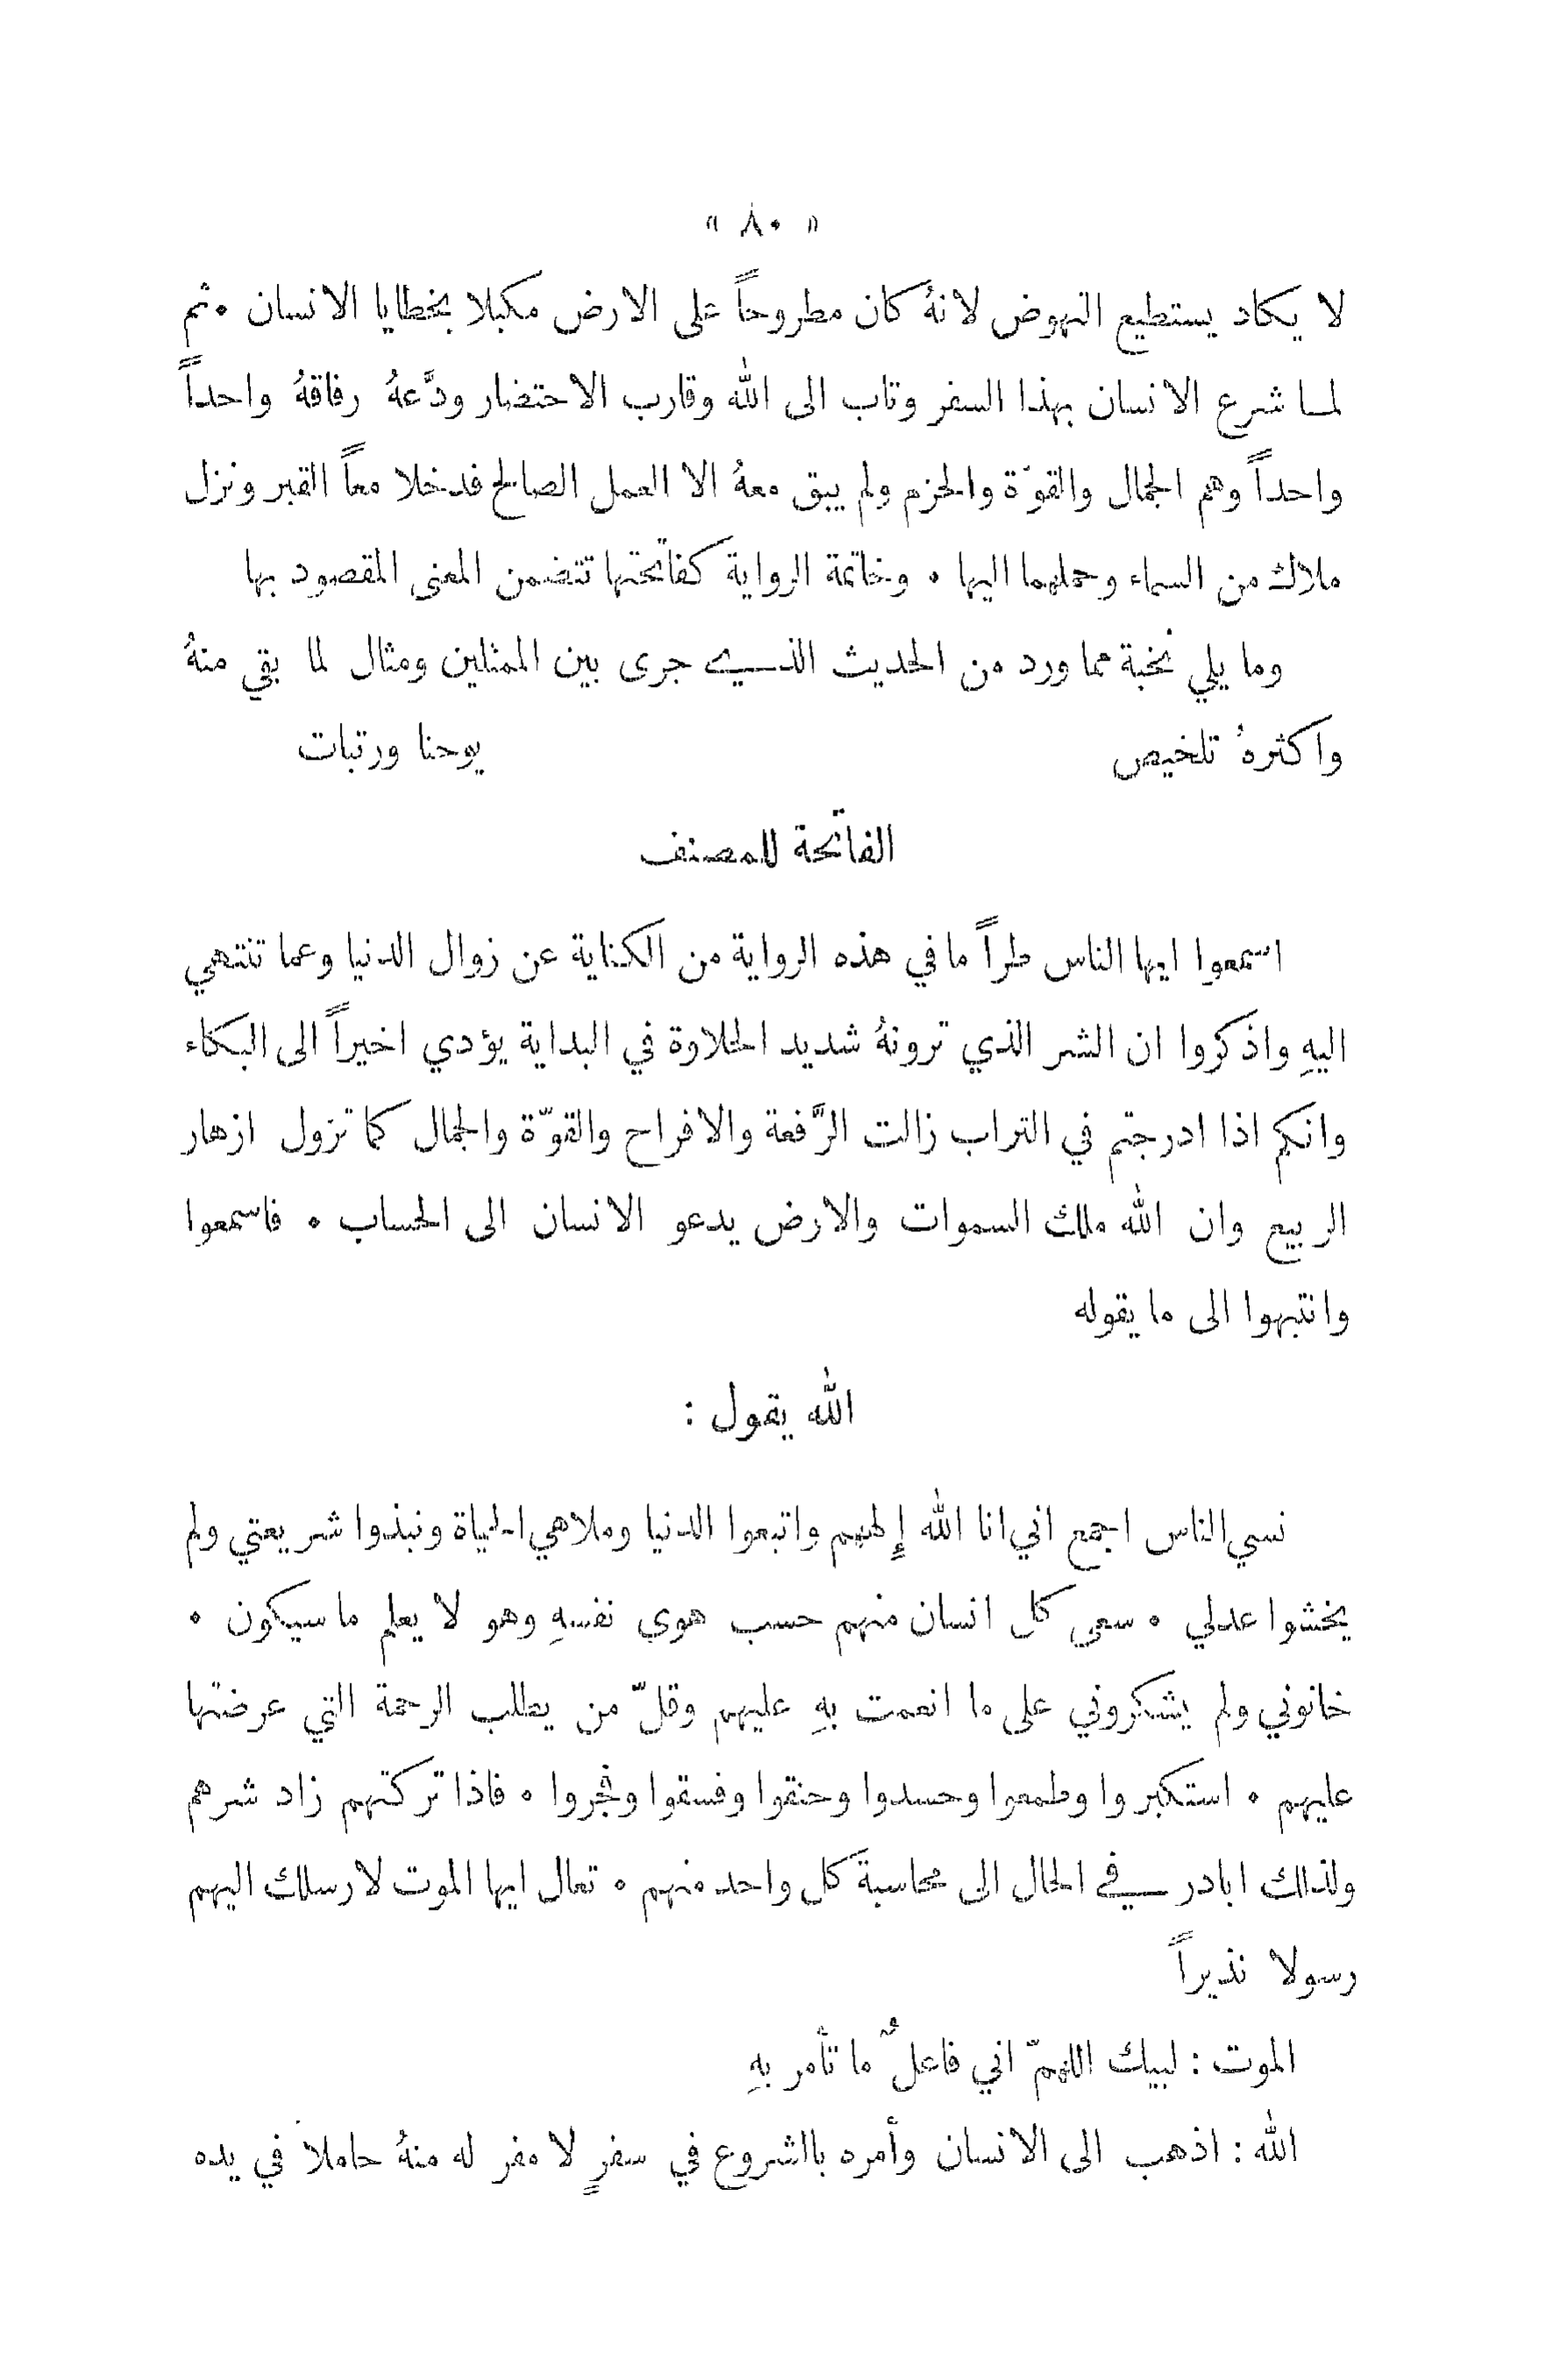 « ٨٠ »
لا يكاد يستطيع النهوض لانهُ كان مطروحاً على الارض مكبلا بخطايا الانسان ٠ ثم
لما شرع الانسان بهذا السفر وتاب الى الله وقارب الاحتضار ودَّعهُ رفاقهُ واحداً
واحداً وهم الجمال والقوّة والحزم ولم يبق معهُ الا العمل الصالح فدخلا معاً القبر ونزل
ملاك من السماء وحملهما اليها ٠ وخاتمة الرواية كفاتحتها تتضمن المعنى المقصود بها
وما يلي نخبة مما ورد من الحديث الذي جرى بين الممثلين ومثال لما بقي منهُ
واكثرهُ تلخيص يوحنا ورتبات
الفاتحة للمصنف
اسمعوا ايها الناس طراً ما في هذه الرواية من الكناية عن زوال الدنيا وعما تنتهي
اليهِ واذكروا ان الشر الذي ترونهُ شديد الحلاوة في البداية يؤدي اخيراً الى البكاء
وانكم اذا ادرجتم في التراب زالت الرَّفعة والافراح والقوّة والجمال كما تزول ازهار
الربيع وان الله ملك السموات والارض يدعو الانسان الى الحساب ٠ فاسمعوا
وانتبهوا الى ما يقوله
الله يقول :
نسي الناس اجمع اني انا الله إِلههم واتبعوا الدنيا وملاهي الحياة ونبذوا شريعتي ولم
يخشوا عدلي ٠ سعى كل انسان منهم حسب هوى نفسهِ وهو لا يعلم ما سيكون ٠
خانوني ولم يشكروني على ما انعمت بهِ عليهم وقلّ من يطلب الرحمة التي عرضتها
عليهم ٠ استكبروا وطمعوا وحسدوا وحنقوا وفسقوا وفجروا ٠ فاذا تركتهم زاد شرهم
ولذلك ابادر في الحال الى محاسبة كل واحد منهم ٠ تعال ايها الموت لارسلك اليهم
رسولا نذيراً
الموت : لبيك اللهمّ اني فاعلٌ ما تأمر بهِ
الله : اذهب الى الانسان وأمره بالشروع في سفرٍ لا مفر له منهُ حاملا في يده